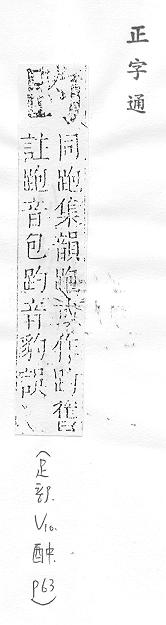 正字通
同跑集韻跑或作趵舊
註跑音包趵音豹誤
(足部. V10. 酉中. p63)